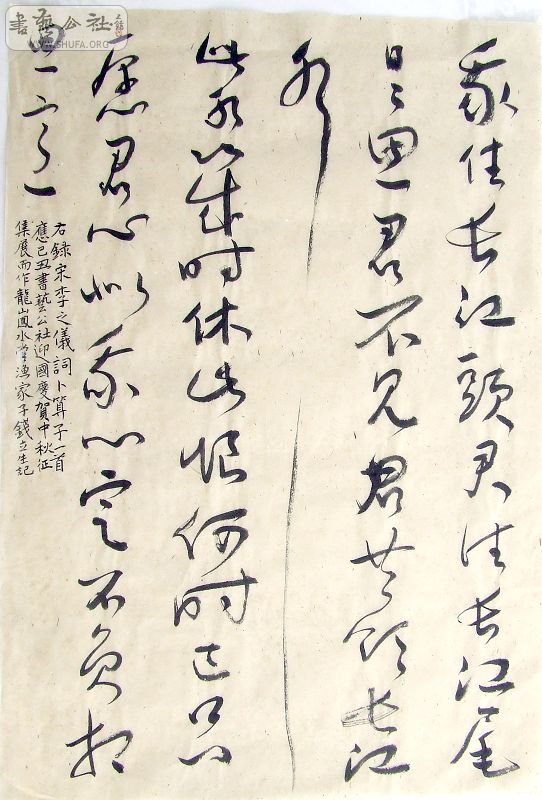 書藝公社
WWW.SHUFA.ORG
我住長江頭君住長江尾
日日思君不見君共飲長江
水
此水幾時休此恨何時已只
愿君心似我心定不負相
思意
右錄宋李之儀詞卜算子一首
應己丑書藝公社迎國慶賀中秋征
集展而作龍山鳳水堂漁家子錢立生記